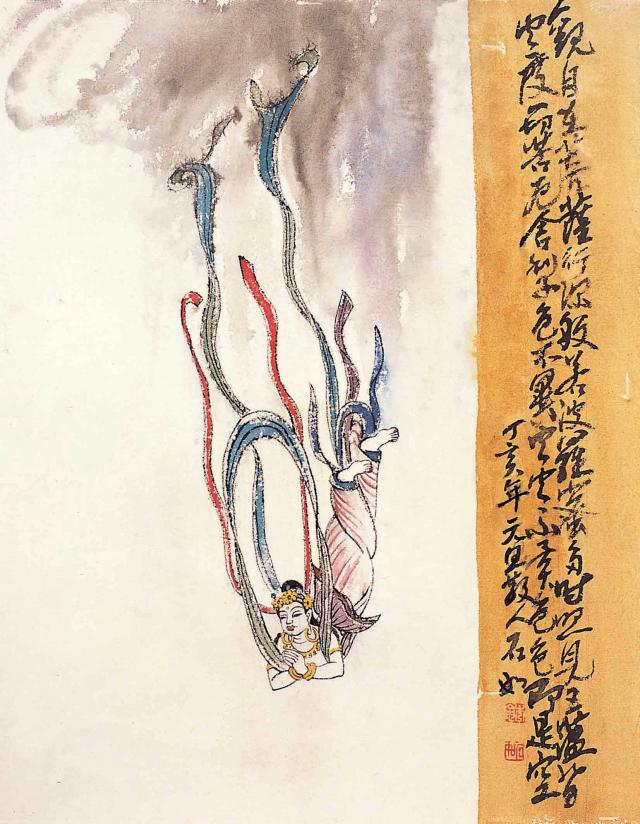 觀自在菩薩行深般若波羅蜜多時照見五蘊皆
空度一切苦厄舍利子色不異空空不異色色即是空
丁亥年元旦散人石如